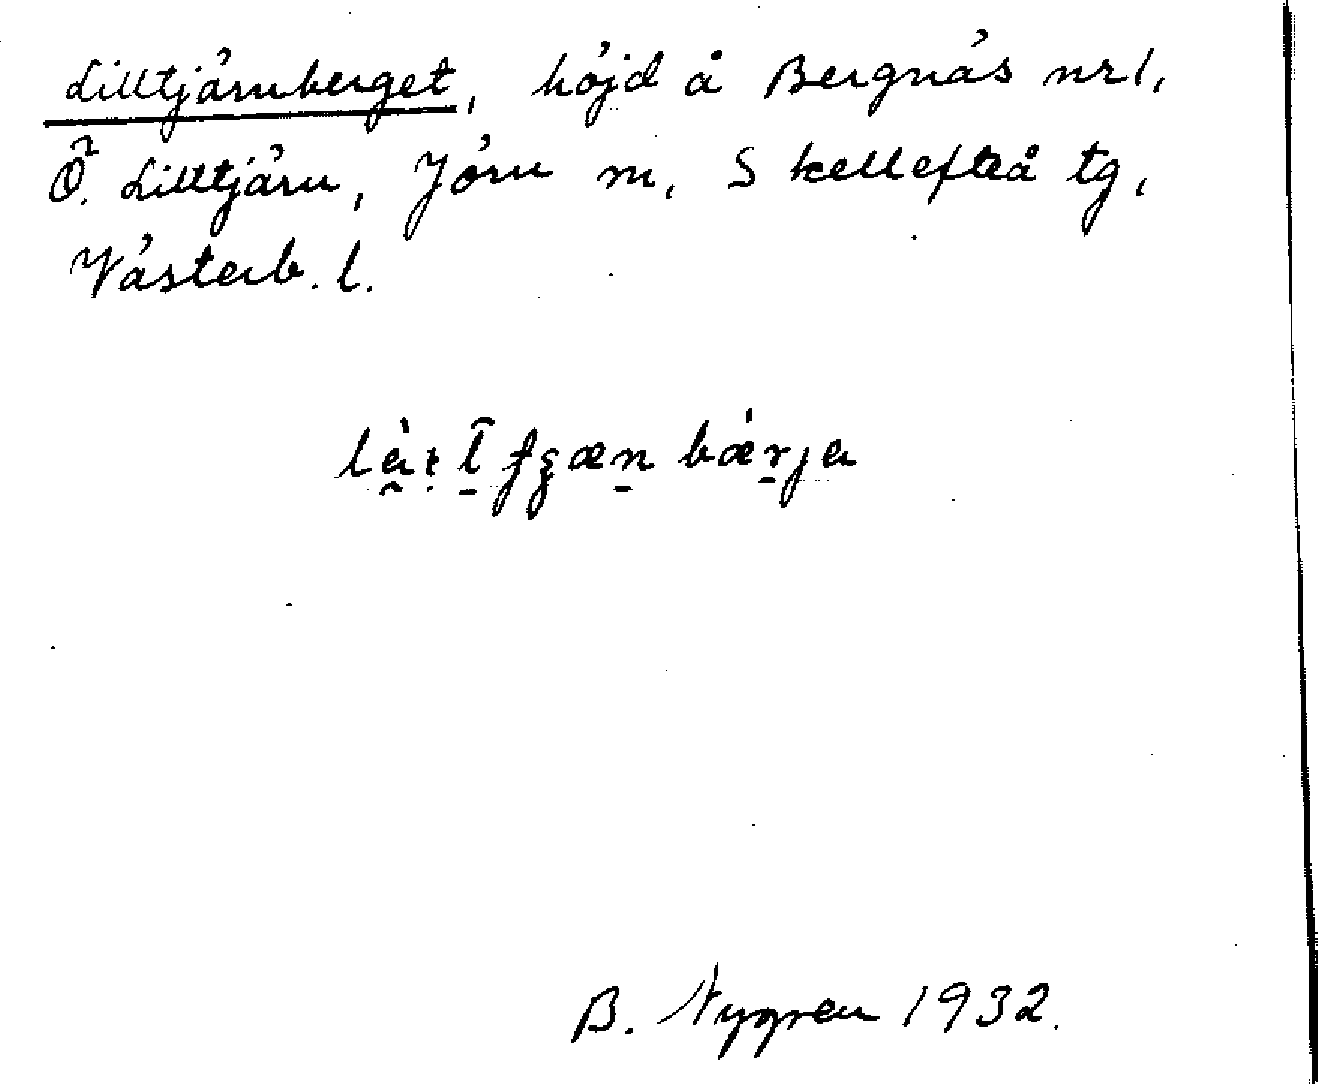 Lilltjärnberget, höjd å Bergnäs nr 1,
Ö. Lilltjärn, Jörn sn, Skellefteå tg,
Västerb. l.
bæ̀rja
B. Nygren 1932.